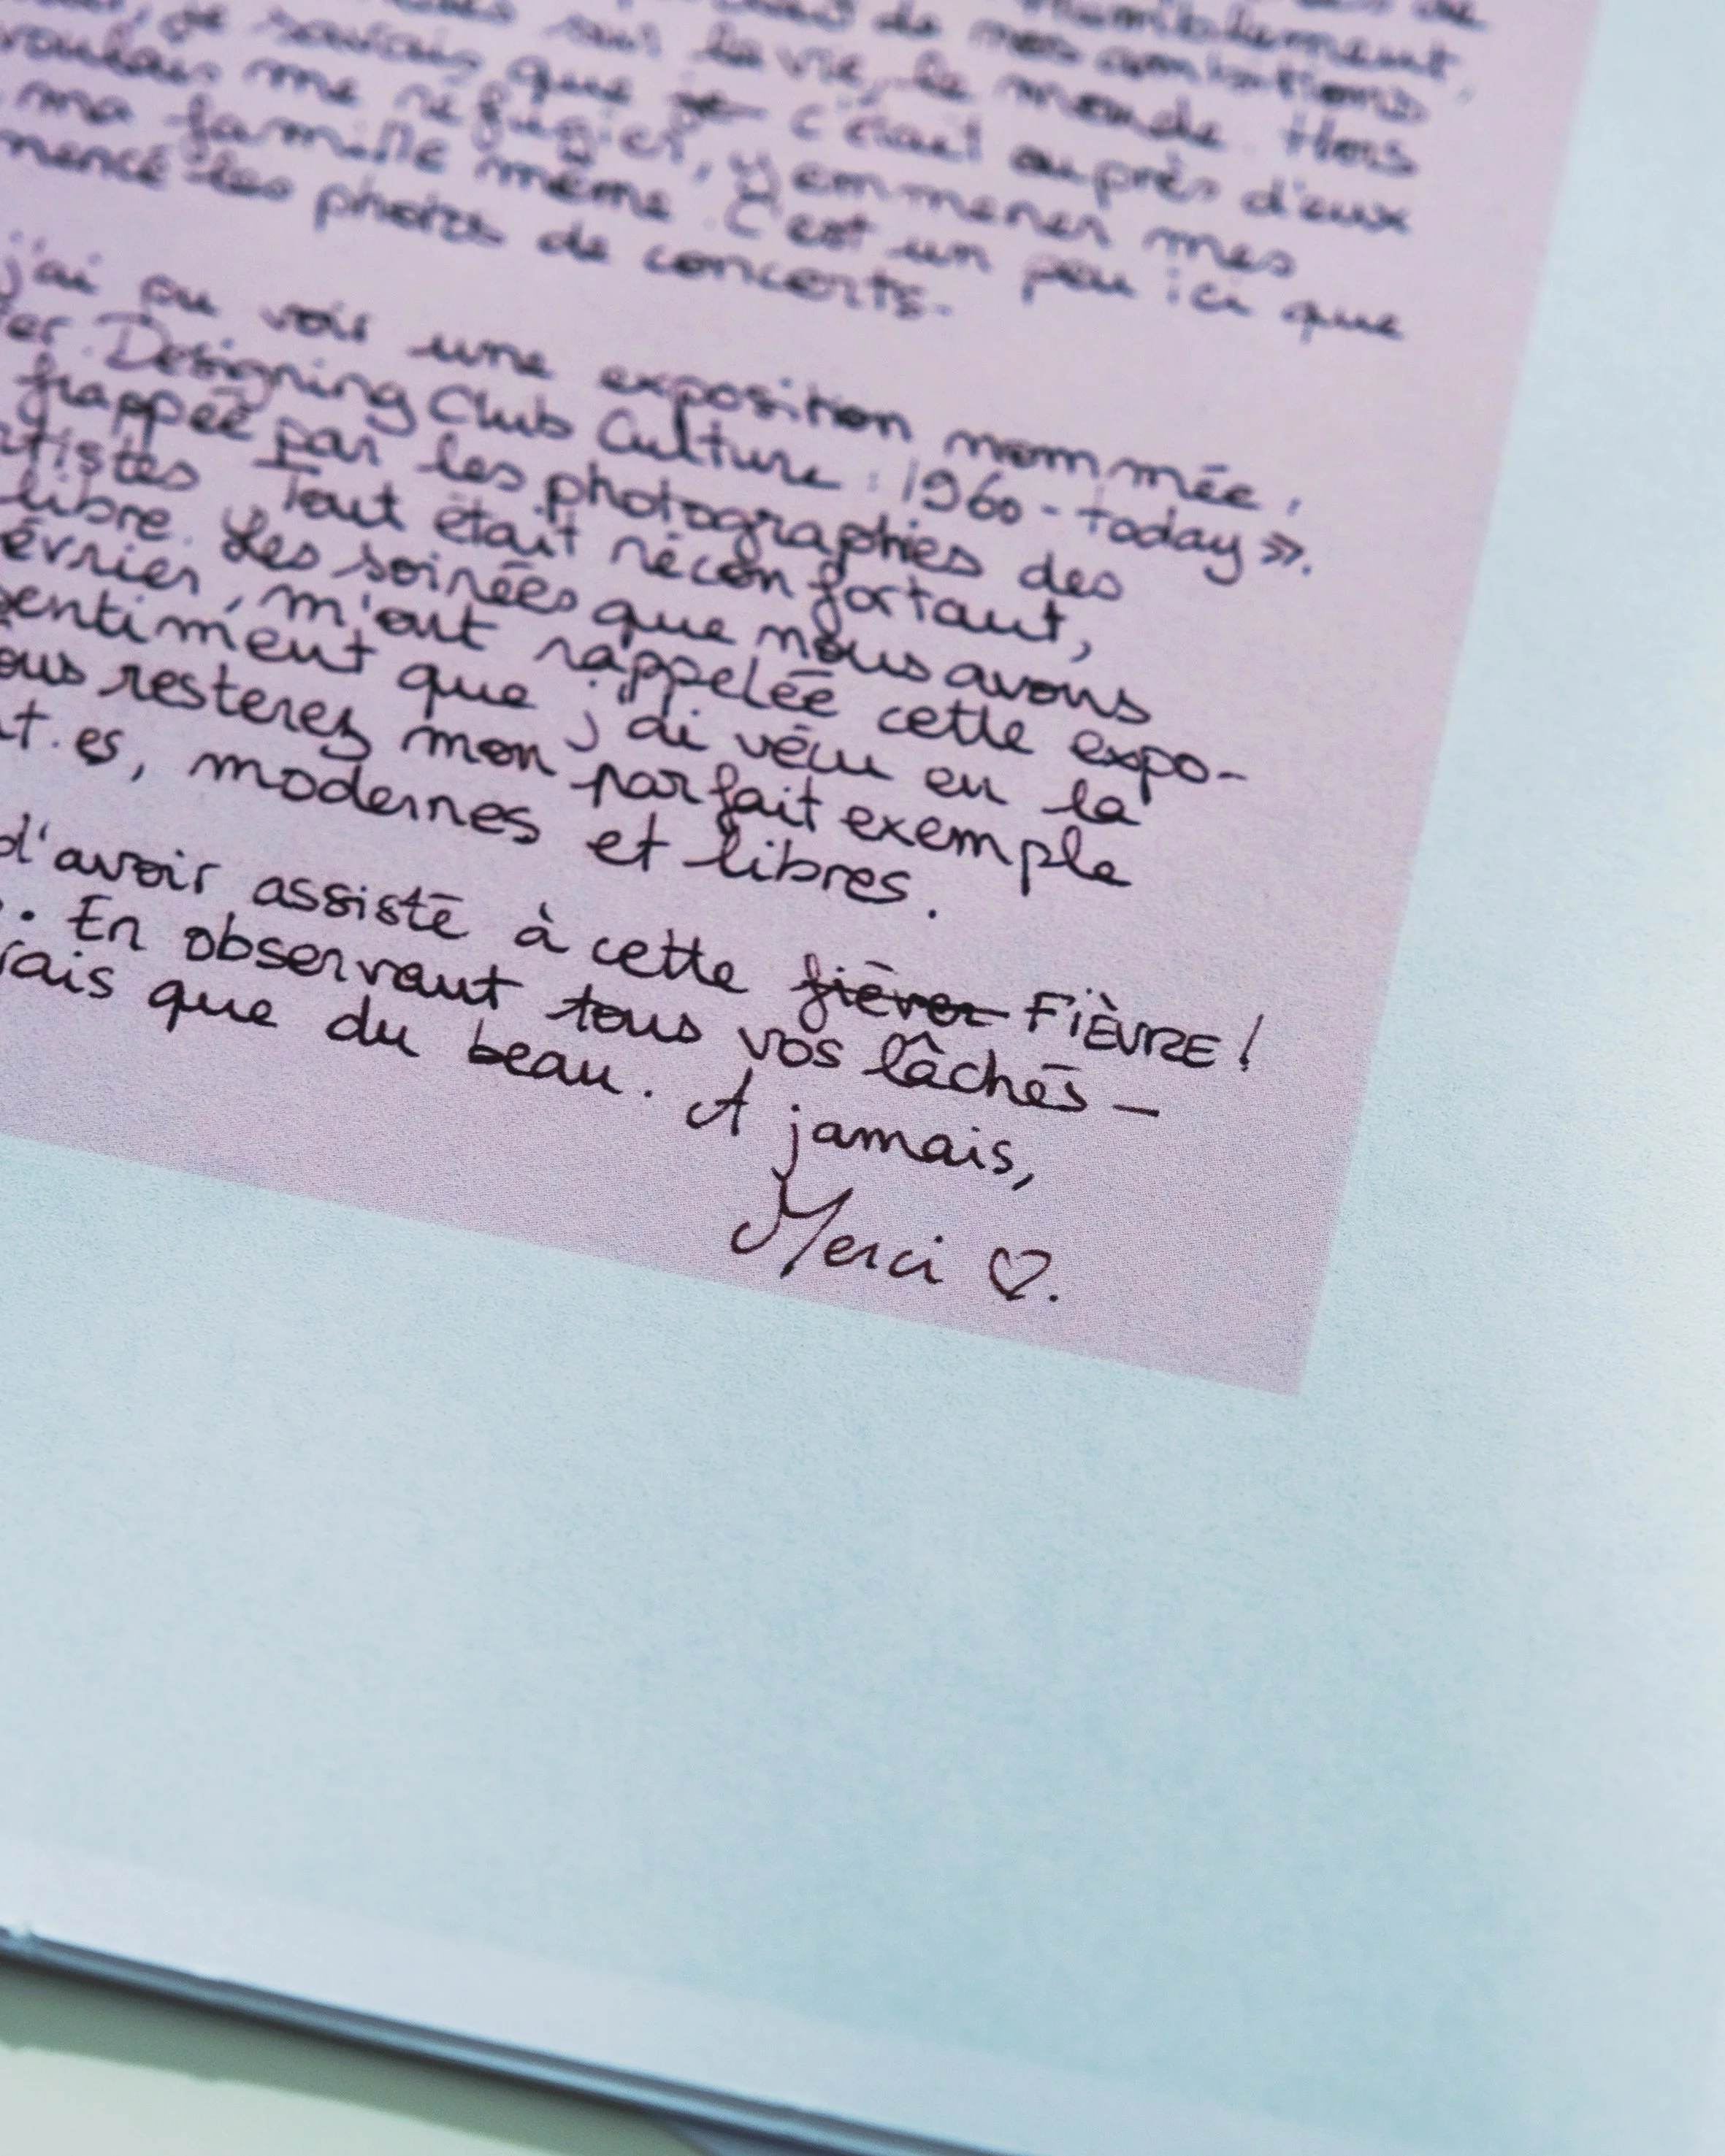 de
humiblement,
de mes ambitions
sur la vie, le monde. Hors
je savais que je c'était auprès d'eux
voulais me réfugier, y emmener mes
ma famille même. C'est un peu ici que
mencé les photos de concerts.
j'ai pu voir une exposition nommée,
er. Designing Club Culture : 1960 - today ».
frappée par les photographies des
rtistes. Tout était réconfortant,
libre. Les soirées que nous avons
évrier, m'ont rappelée cette expo-
sentiment que j'ai vécu en la
ous resterez mon parfait exemple
t.es, modernes et libres.
d'avoir assisté à cette fièvre FIÈVRE !
. En observant tous vos lâchés-
rais que du beau. A jamais,
Merci ♡.